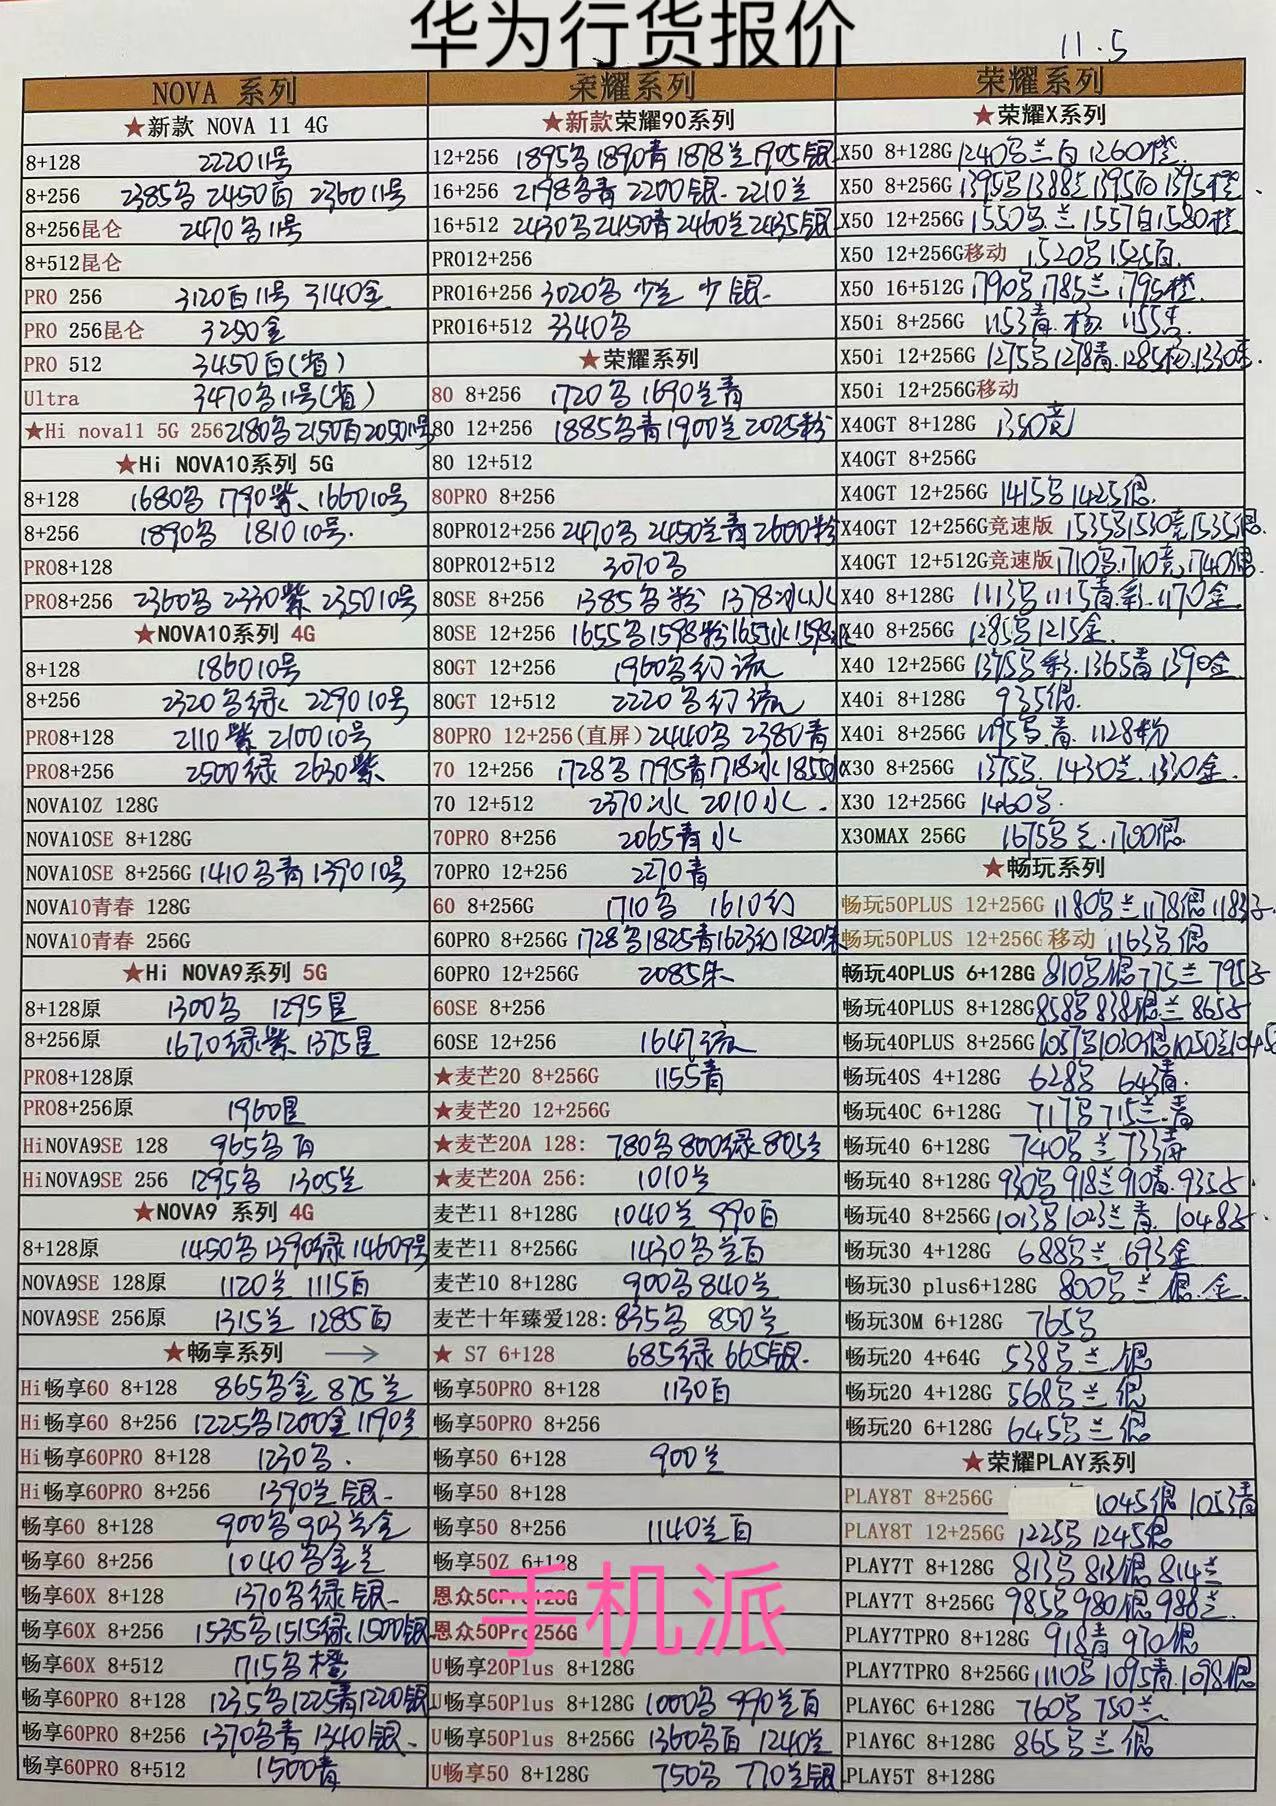 华为行货报价
11.5
NOVA 系列
★新款 NOVA 11 4G
8+128 2220 11号
8+256 2385 2450白 2360 11号
8+256昆仑 2470 11号
8+512昆仑
PRO 256 3120白 11号 3140金
PRO 256昆仑 3250金
PRO 512 3450白(省)
Ultra 3470 11号(省)
★Hi nova11 5G 256 2180 2150白 2050 11号
★Hi NOVA10系列 5G
8+128 1680 1790紫、1660 10号
8+256 1890 1810 10号.
PRO8+128
PRO8+256 2360 2330紫 2350 10号
★NOVA10系列 4G
8+128 1860 10号
8+256 2320 绿 2290 10号
PRO8+128 2110紫 2100 10号
PRO8+256 2500绿 2630紫
NOVA10Z 128G
NOVA10SE 8+128G
NOVA10SE 8+256G 1410 青 1390 10号
NOVA10青春 128G
NOVA10青春 256G
★Hi NOVA9系列 5G
8+128原 1300 1295星
8+256原 1670绿紫 1375星
PRO8+128原
PRO8+256原 1960星
HiNOVA9SE 128 965 白
HiNOVA9SE 256 1295 1305兰
★NOVA9 系列 4G
8+128原 1450 1390绿 1460 9号
NOVA9SE 128原 1120兰 1115白
NOVA9SE 256原 1315兰 1285白
★畅享系列 →
Hi畅享60 8+128 865 金 875兰
Hi畅享60 8+256 1225 1200金 1190兰
Hi畅享60PRO 8+128 1230
Hi畅享60PRO 8+256 1390兰 银
畅享60 8+128 900 903兰金
畅享60 8+256 1040 金兰
畅享60X 8+128 1370 绿 银
畅享60X 8+256 1535 1515绿 1500银
畅享60X 8+512 1715 橙
畅享60PRO 8+128 1235 1225青 1220银
畅享60PRO 8+256 1370 青 1340银
畅享60PRO 8+512 1500青
荣耀系列
★新款荣耀90系列
12+256 1895 1890青 1878兰 1905银
16+256 2198 青 2200银 2210兰
16+512 2430 2450青 2460兰 2435银
PRO12+256
PRO16+256 3020 少兰 少银
PRO16+512 3340
★荣耀系列
80 8+256 1720 1690兰青
80 12+256 1885 青 1900兰 2025粉
80 12+512
80PRO 8+256
80PRO12+256 2470 2450兰青 2600粉
80PRO12+512 3070
80SE 8+256 1385 粉 1378冰
80SE 12+256 1655 1598粉
80GT 12+256 1960 幻 流
80GT 12+512 2220 幻 流
80PRO 12+256(直屏) 2440 2380青
70 12+256 1728 1795青 1718冰
70 12+512 2370冰 2010水
70PRO 8+256 2065青 水
70PRO 12+256 2270青
60 8+256G 1710 1610幻
60PRO 8+256G 1728 1825青 1623幻 1820朱
60PRO 12+256G 2085朱
60SE 8+256
60SE 12+256 1647流
★麦芒20 8+256G 1155青
★麦芒20 12+256G
★麦芒20A 128: 780 800绿 805兰
★麦芒20A 256: 1010兰
麦芒11 8+128G 1040兰 990白
麦芒11 8+256G 1430 兰白
麦芒10 8+128G 900 840兰
麦芒十年臻爱128: 835 850兰
★ S7 6+128 685绿 665银
畅享50PRO 8+128 1130白
畅享50PRO 8+256
畅享50 6+128 900兰
畅享50 8+128
畅享50 8+256 1140兰白
畅享50Z 6+128
恩众50Pro128G
恩众50Pro256G
手机派
U畅享20Plus 8+128G
U畅享50Plus 8+128G 1000 990兰白
U畅享50Plus 8+256G 1360 白 1240兰
U畅享50 8+128G 750 770兰银
荣耀系列
★荣耀X系列
X50 8+128G 1240 兰白 1260橙
X50 8+256G 1395 1388兰 1395白 1395橙
X50 12+256G 1550 兰 1557白 1580橙
X50 12+256G移动 1520 1525白
X50 16+512G 1790 1785兰 1795橙
X50i 8+256G 1153青 粉 1155
X50i 12+256G 1275 1278青 1285粉 1330
X50i 12+256G移动
X40GT 8+128G 1350竞
X40GT 8+256G
X40GT 12+256G 1415 1425银
X40GT 12+256G竞速版 1535 1530竞 1535银
X40GT 12+512G竞速版 1710 1710竞 1740银
X40 8+128G 1113 1115青 彩 1170金
X40 8+256G 1285 1215金
X40 12+256G 1375 彩 1365青 1390金
X40i 8+128G 935银
X40i 8+256G 1195 青 1128粉
X30 8+256G 1375 1430兰 1330金
X30 12+256G 1460
X30MAX 256G 1675 兰 1700银
★畅玩系列
畅玩50PLUS 12+256G 1180 兰 1178银
畅玩50PLUS 12+256G 移动 1163 银
畅玩40PLUS 6+128G 810 银 775兰 795
畅玩40PLUS 8+128G 858 838银兰 865
畅玩40PLUS 8+256G 1057 1030银 1050兰 1045
畅玩40S 4+128G 628 643青
畅玩40C 6+128G 717 715兰 青
畅玩40 6+128G 740 兰 733青
畅玩40 8+128G 930 918兰 910青 935
畅玩40 8+256G 1013 1023兰 青 1048
畅玩30 4+128G 688 兰 693金
畅玩30 plus6+128G 800 兰 银 金
畅玩30M 6+128G 765
畅玩20 4+64G 538 兰 银
畅玩20 4+128G 568 兰 银
畅玩20 6+128G 645 兰 银
★荣耀PLAY系列
PLAY8T 8+256G 1045银 1053青
PLAY8T 12+256G 1225 1245银
PLAY7T 8+128G 813 813银 814兰
PLAY7T 8+256G 985 980银 988兰
PLAY7TPRO 8+128G 918青 970银
PLAY7TPRO 8+256G 1110 1095青 1098银
PLAY6C 6+128G 760 750兰
PlAY6C 8+128G 865 兰 银
PLAY5T 8+128G